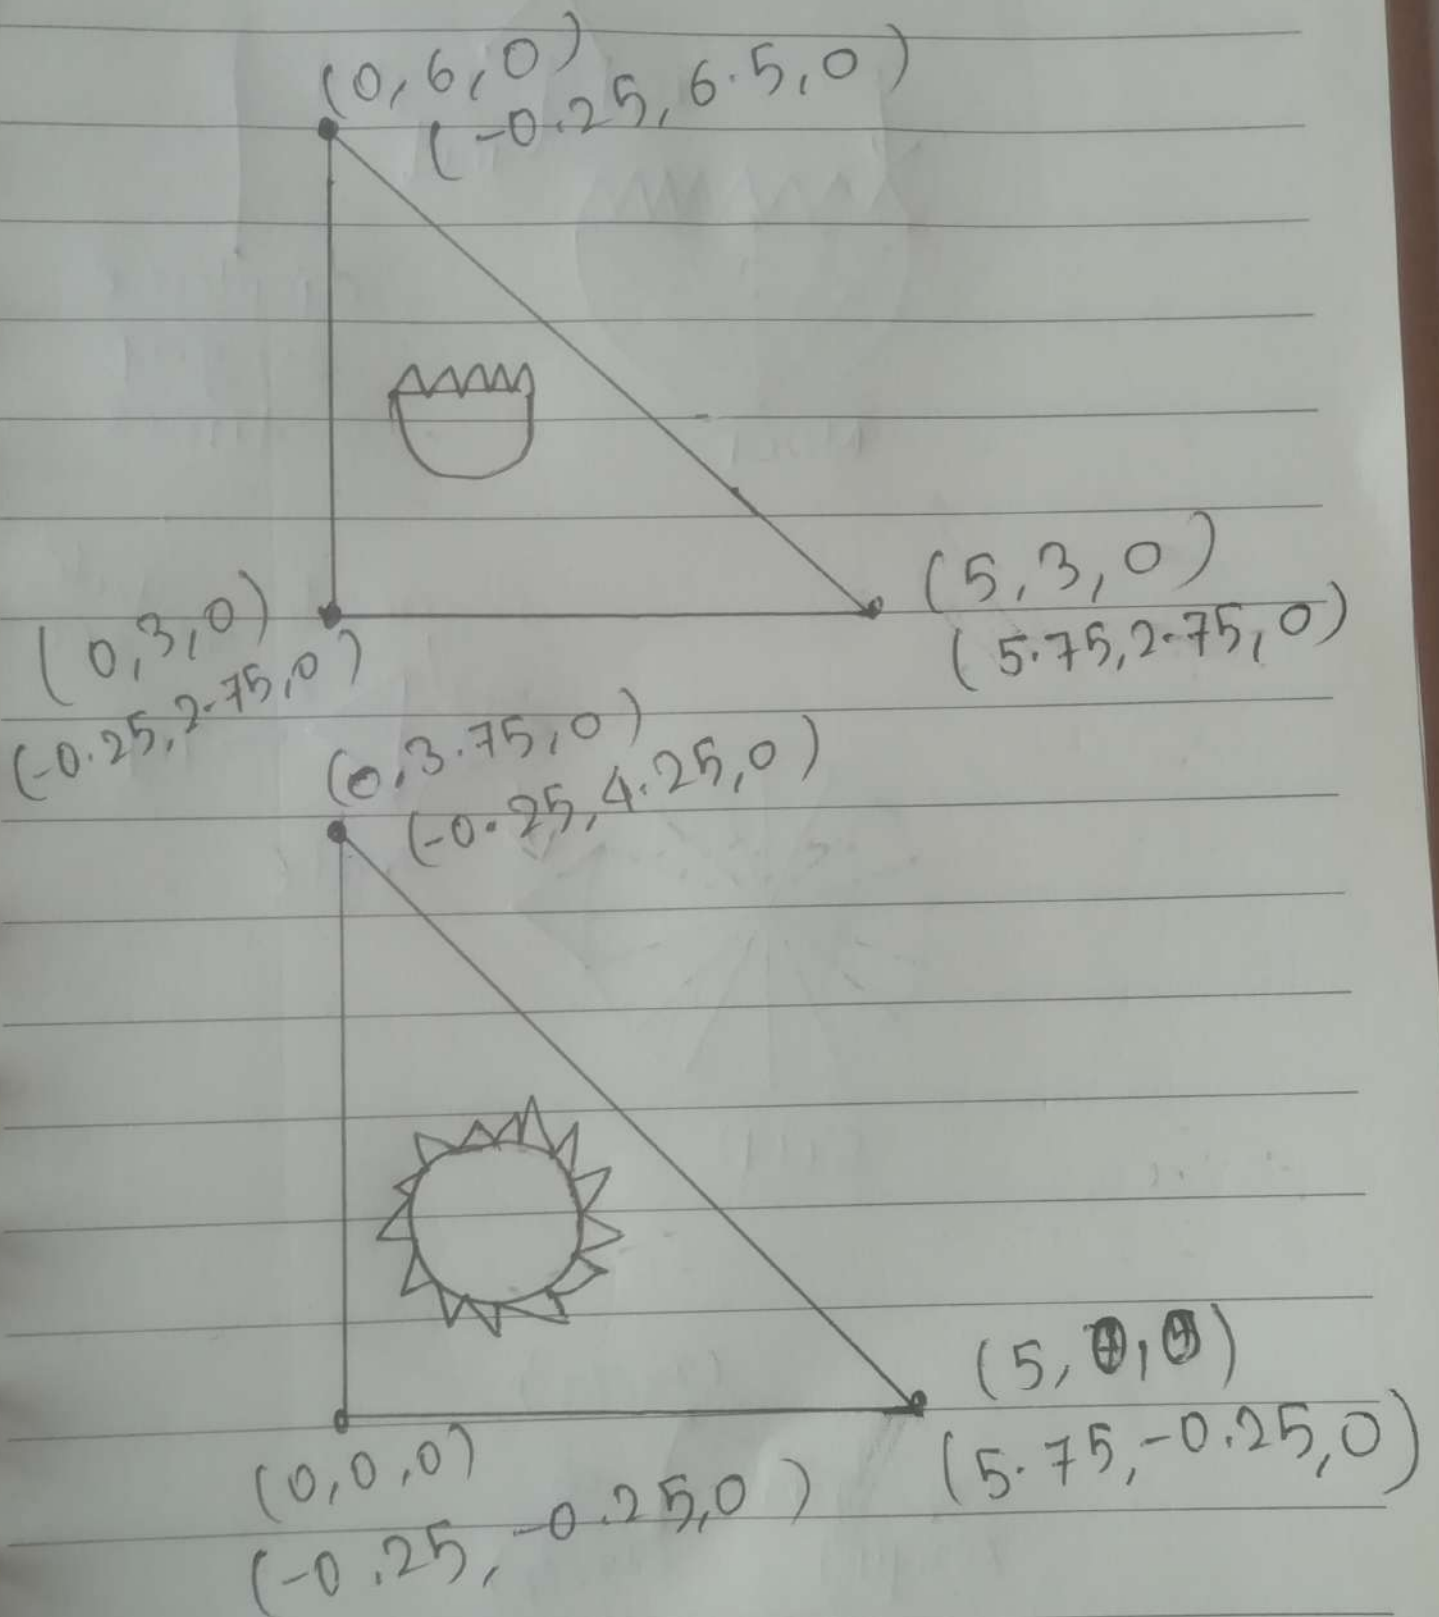 (0,6,0)
(-0.25,6.5,0)
(5,3,0)
(5.75,2.75,0)
(0,3,0)
(-0.25,2.75,0)
(0,3.75,0)
(-0.25,4.25,0)
(5,0,0)
(5.75,-0.25,0)
(0,0,0)
(-0.25,-0.25,0)